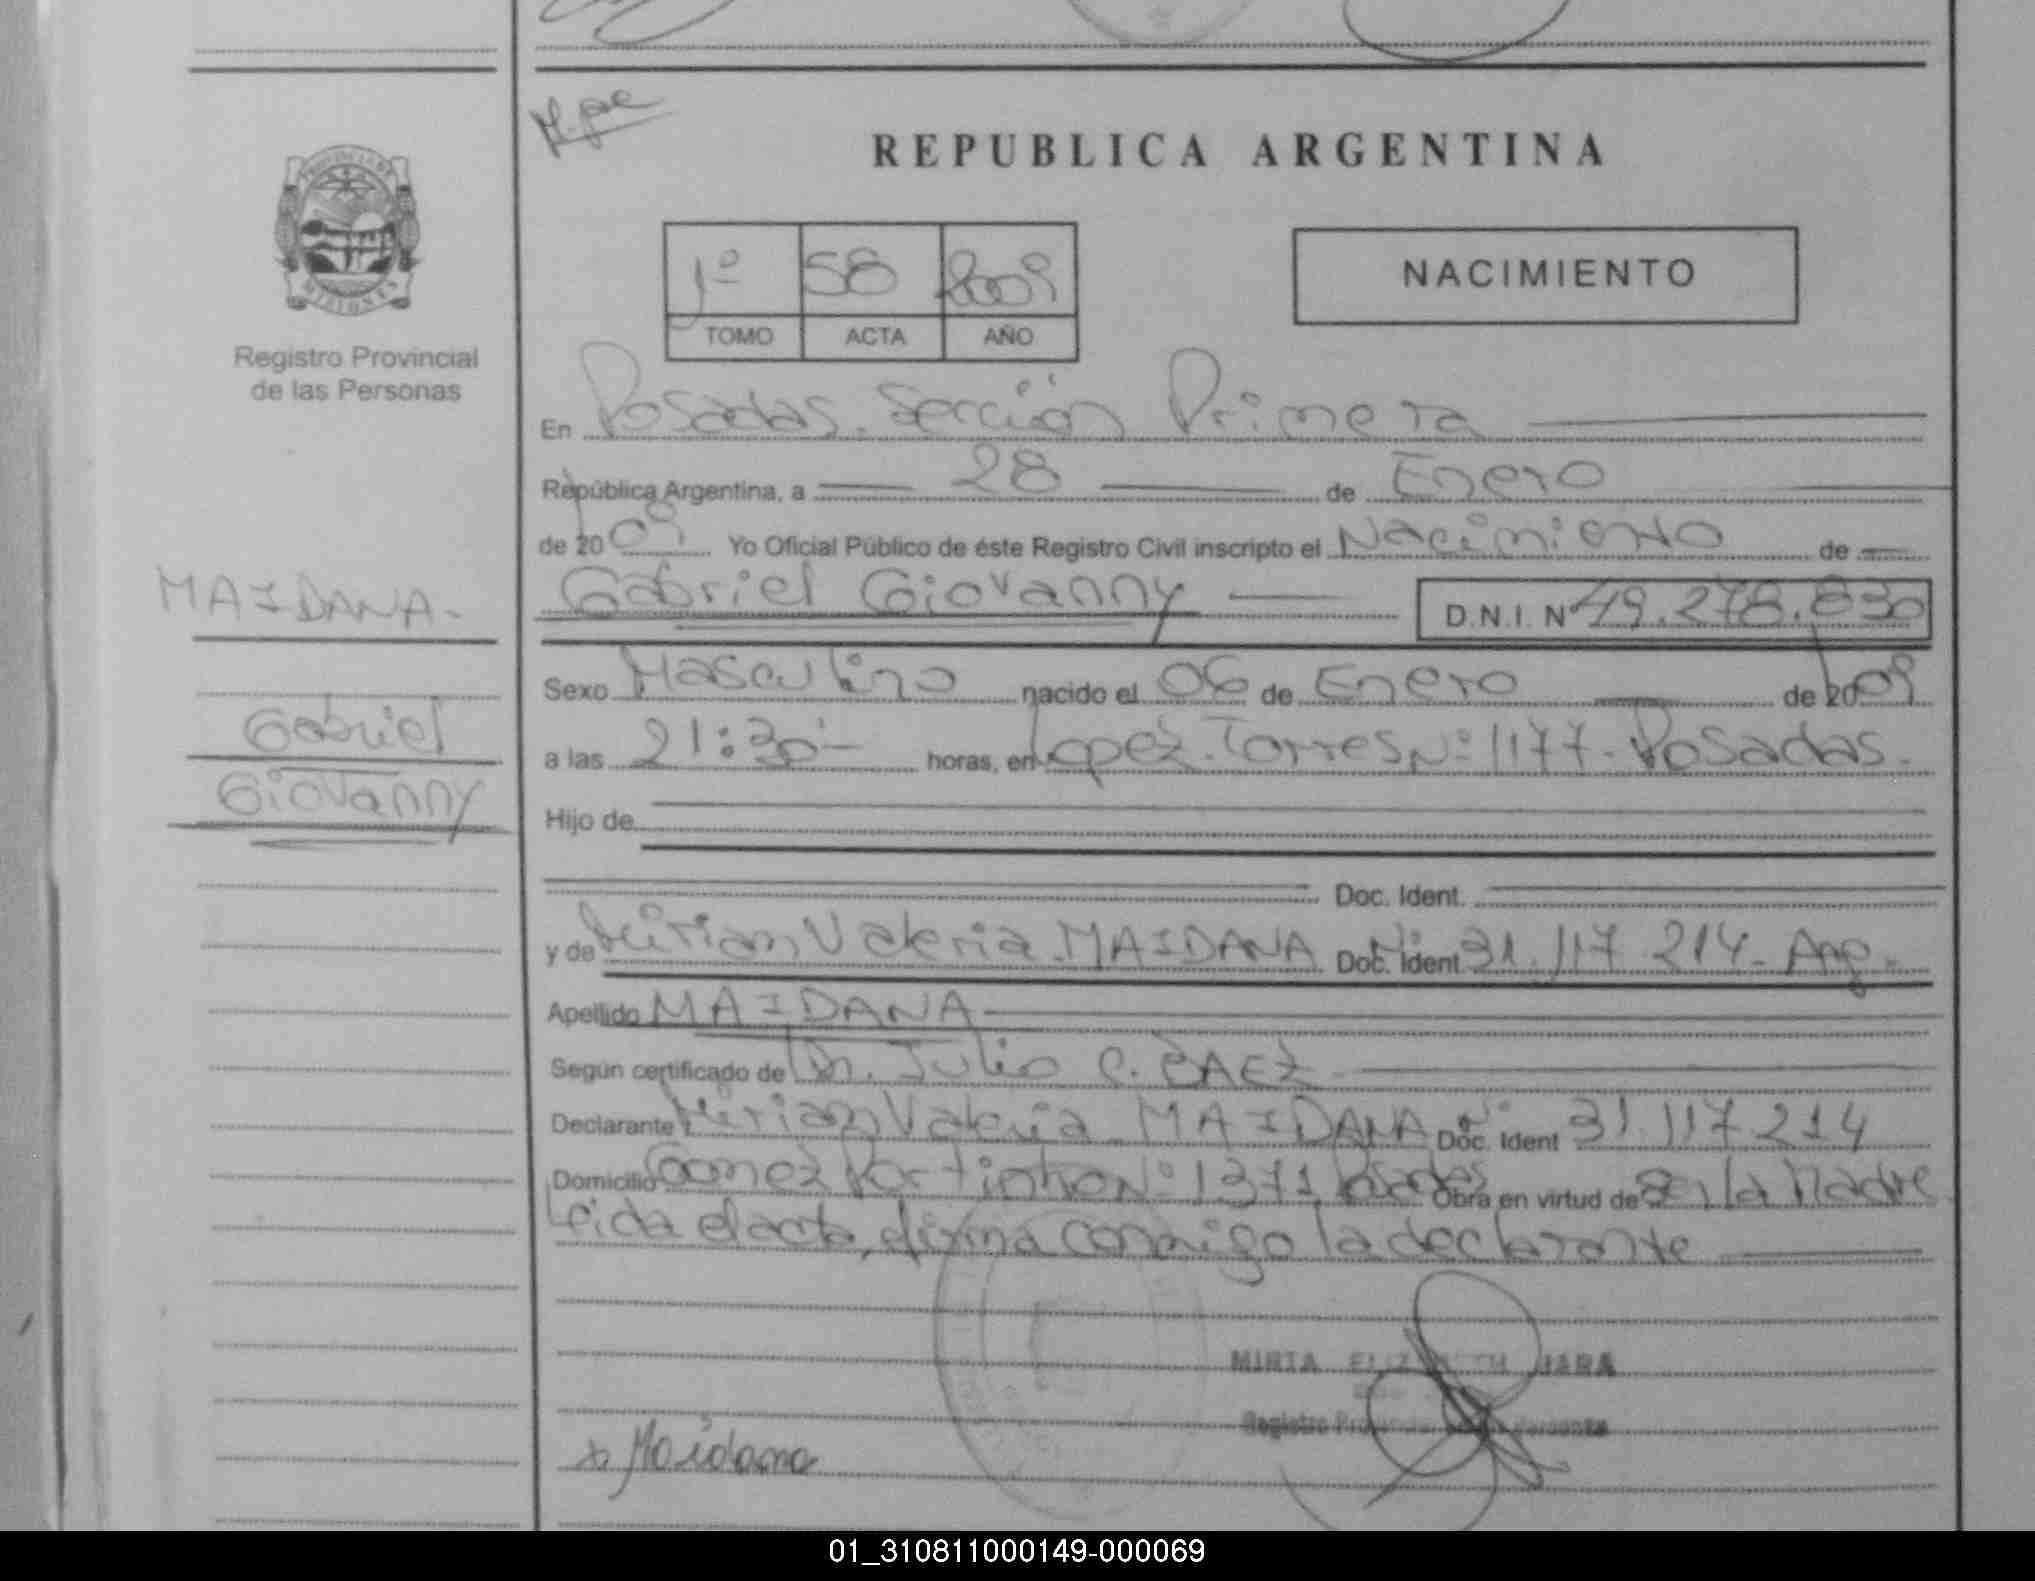 REPUBLICA ARGENTINA
PROVINCIA DE
MISIONES
Registro Provincial
de las Personas
1º 58 2009
TOMO ACTA AÑO
NACIMIENTO
En Posadas. Sección Primera
República Argentina, a 28 de Enero
de 2009 Yo Oficial Público de éste Registro Civil inscripto el Nacimiento de
MAIDANA.
Gabriel Giovanny D.N.I. Nº 49.278.830
Sexo Masculino nacido el 06 de Enero de 2009
Gabriel
a las 21:30 horas, en Lopez Torres Nº 1177. Posadas.
Giovanny
Hijo de
Doc. Ident.
y de Mirian Valeria MAIDANA Doc. Ident Nº 31.117.214. Arg.
Apellido MAIDANA
Según certificado de Dr. Julio C. BAEZ
Declarante Mirian Valeria MAIDANA Doc. Ident Nº 31.117.214
Domicilio Gomez Portinho Nº 1371 Posadas Obra en virtud de Ser la Madre
Leida el acta, firma conmigo la declarante
MIRTA ELIZABETH JARA
Registro Provincial de las Personas
x Maidana
01_310811000149-000069